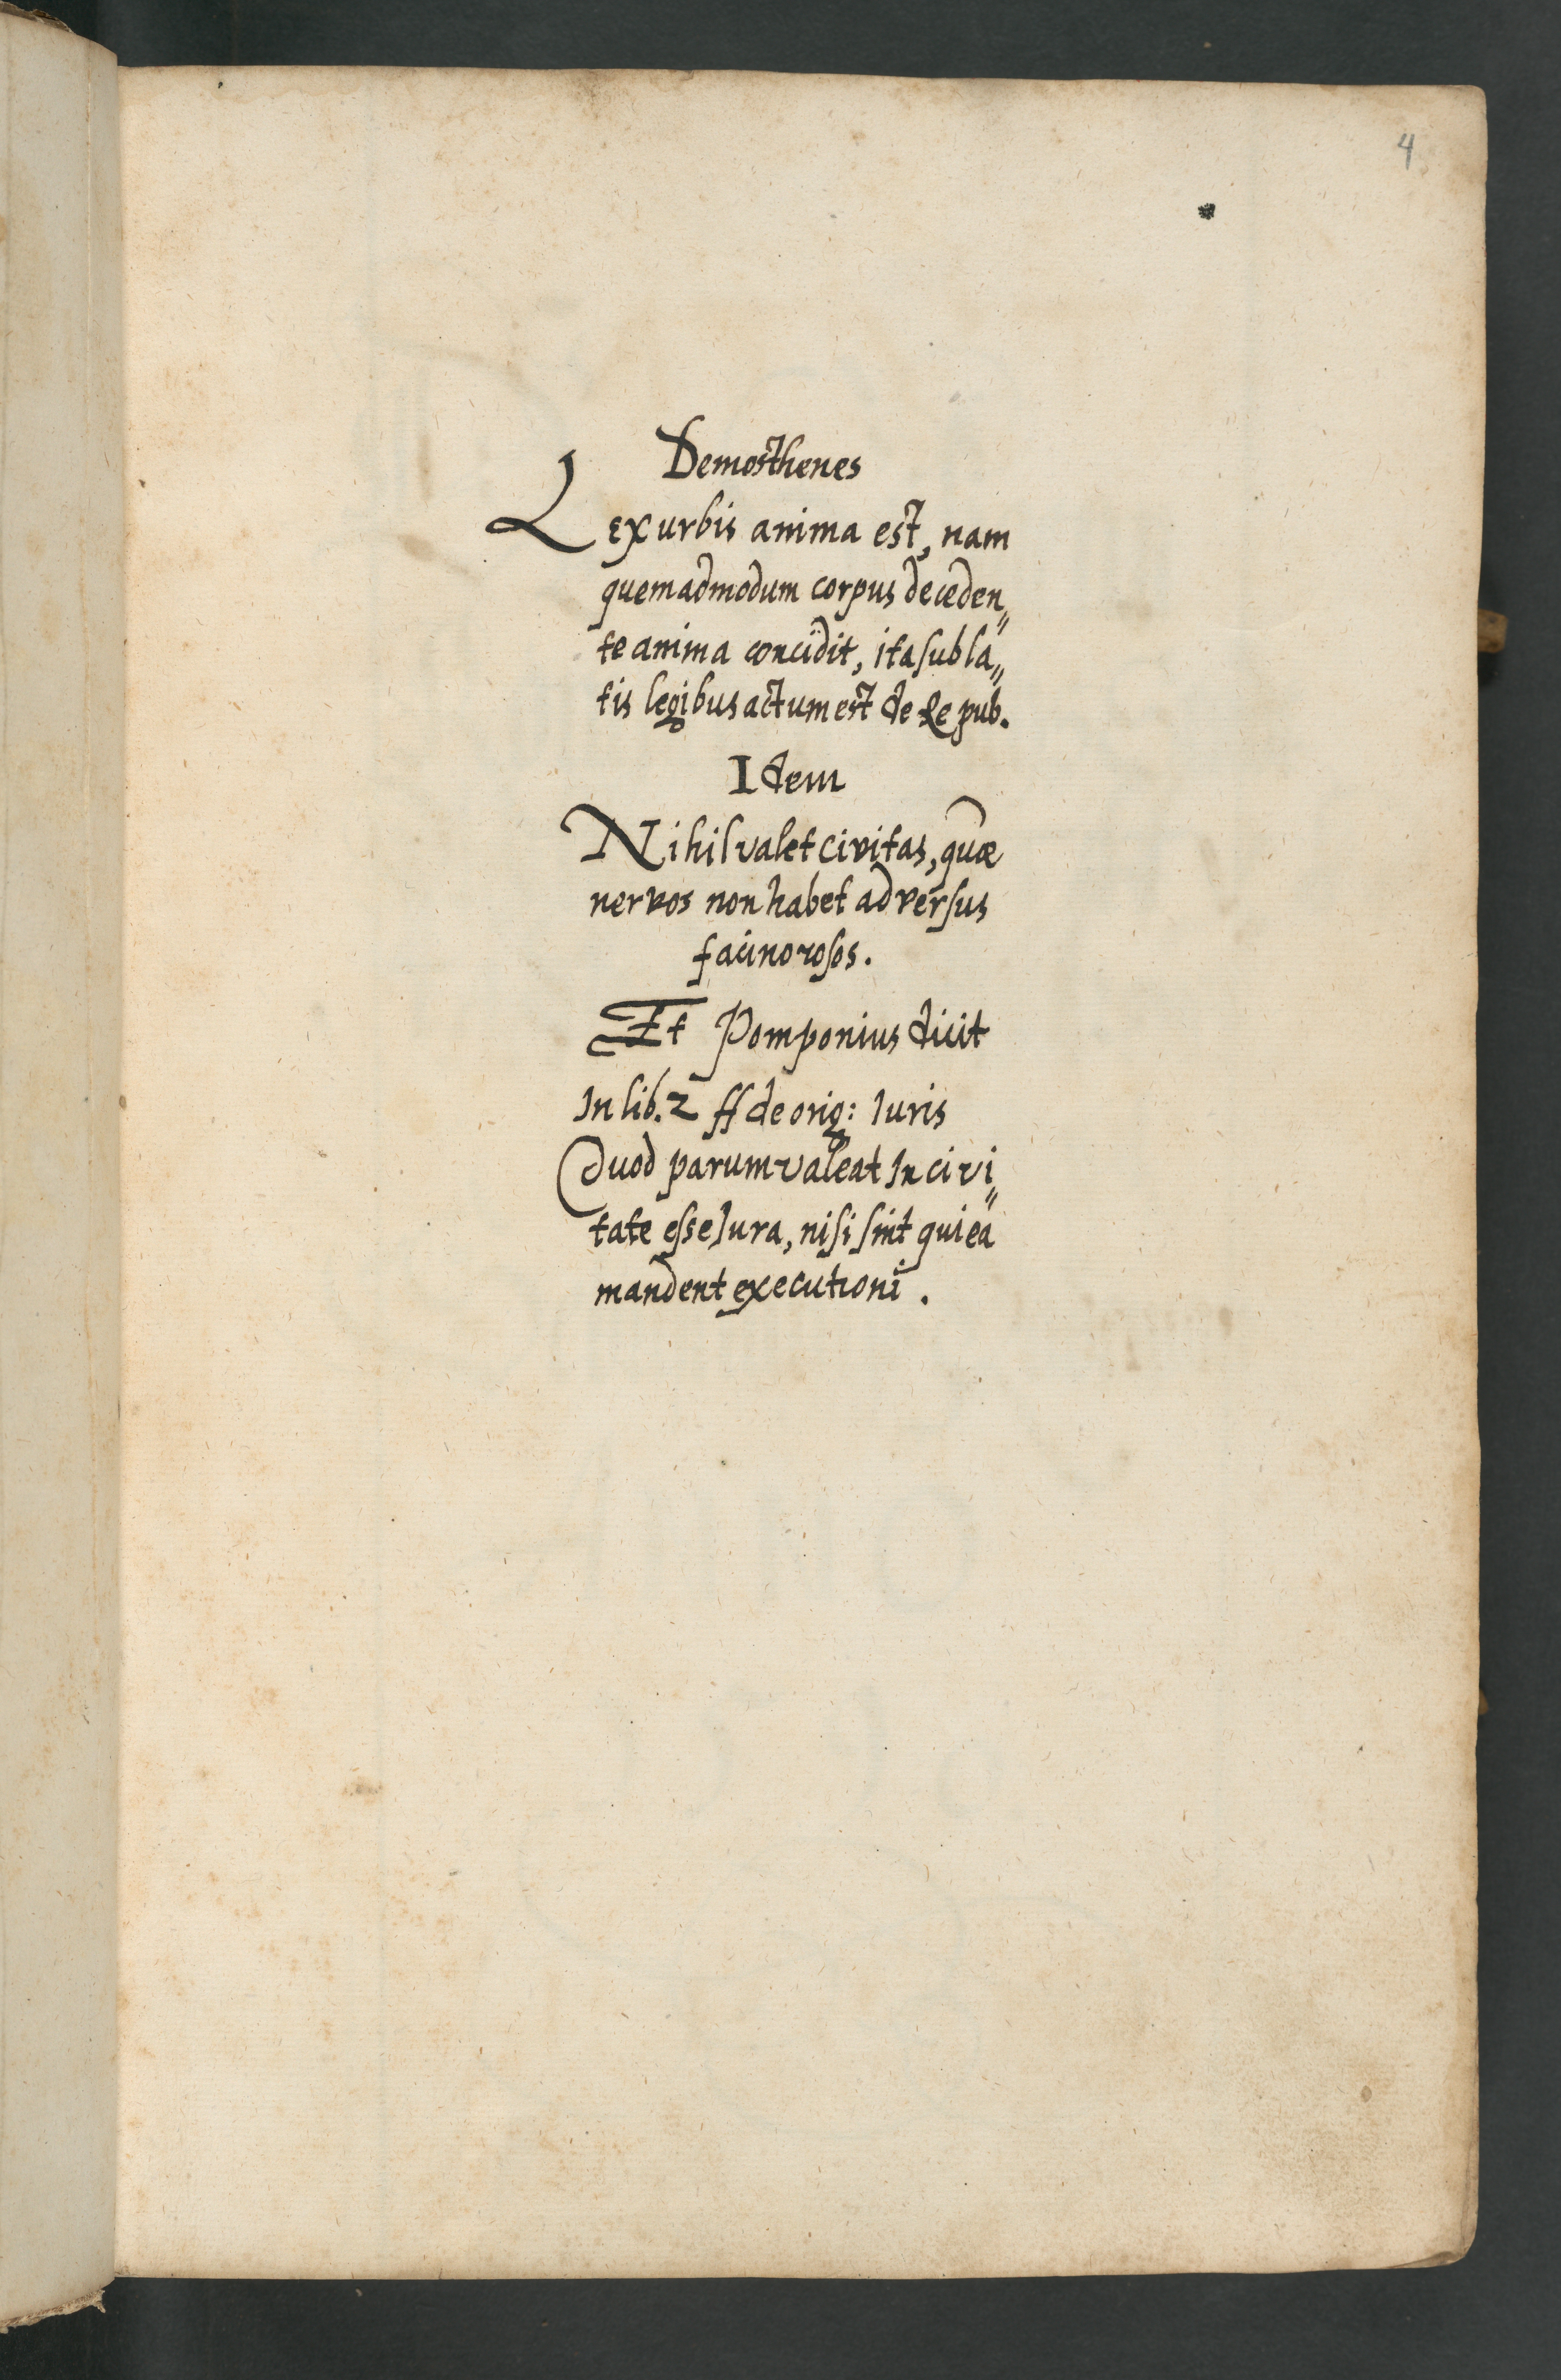 4
Demosthenes
Lex urbis anima est, nam
quemadmodum corpus deceden„
te anima concidit, ita subla„
tis legibus actum est de Re pub.
Idem
Nihil valet civitas, quæ
nervos non habet adversus
facinorosos.
Et Pomponius dicit
In lib. 2 ff de orig: Iuris
Quod parum valeat In civi„
tate esse Iura, nisi sint qui ea
mandent executioni.